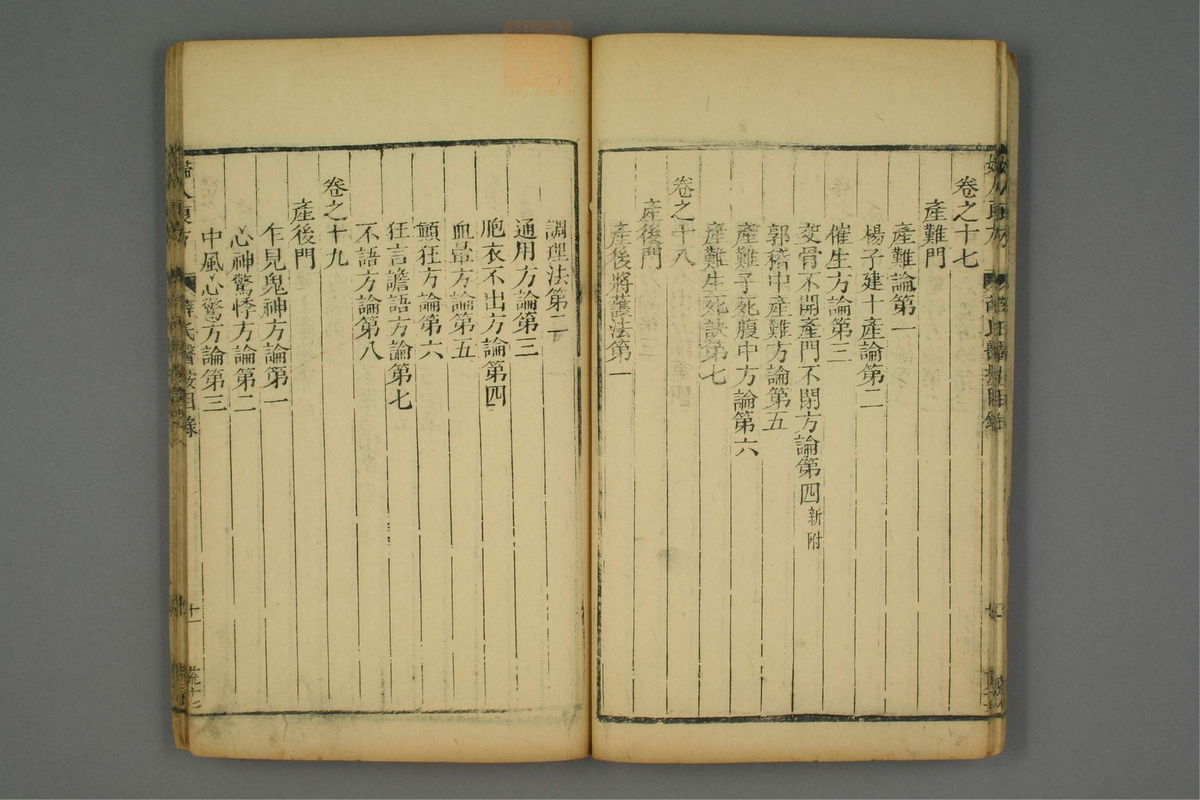 卷之十七
產難門
產難論第一
楊子建十產論第二
催生方論第三
交骨不開產門不閉方論第四新附
郭稽中產難方論第五
產難子死腹中方論第六
產難生死訣第七
卷之十八
產後門
產後將護法第一
調理法第二
通用方論第三
胞衣不出方論第四
血暈方論第五
顫狂方論第六
狂言譫語方論第七
不語方論第八
卷之十九
產後門
乍見鬼神方論第一
心神驚悸方論第二
中風心驚方論第三
薛氏醫按目錄
十一